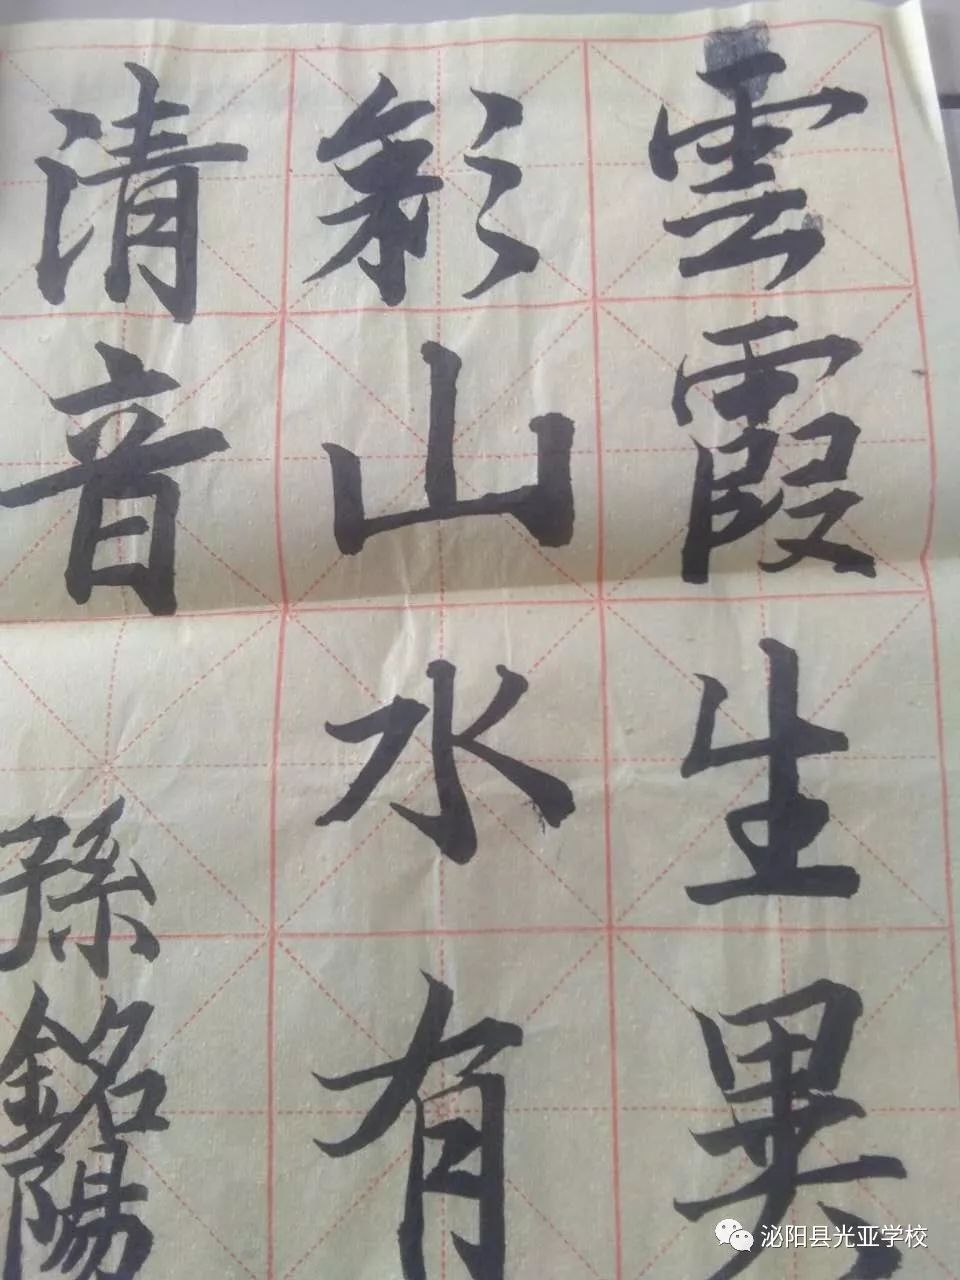 雲霞生異
彩山水有
清音
孫銘陽
泌阳县光亚学校